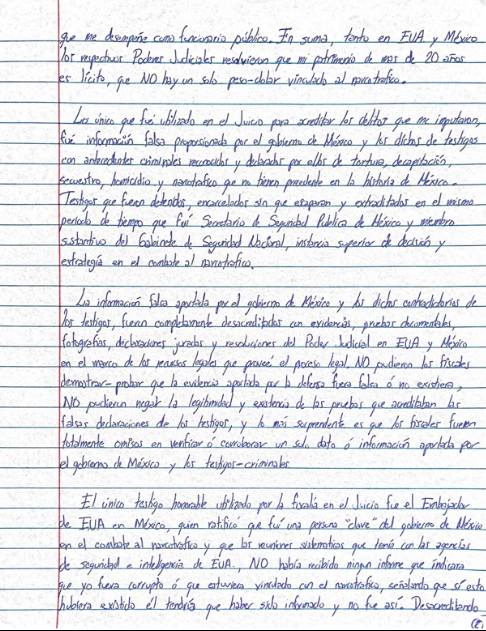 que me desempeñe como funcionario público. En suma, tanto en EUA y México
los respectivos Poderes Judiciales resolvieron que mi patrimonio de mas de 20 años
es lícito, que NO hay un solo peso-dolar vinculado al narcotrafico.
Lo único que fué utilizado en el Juicio para acreditar los delitos que me imputaron,
fué información falsa proporsionada por el gobierno de México y los dichos de testigos
con antecedentes criminales reconocidos y declarados por ellos de tortura, decapitación,
secuestro, homicidio y narcotrafico que no tienen precedente en la historia de México.
Testigos que fueron detenidos, encarcelados sin que escaparan y extraditados en el mismo
periodo de tiempo que fuí Secretario de Seguridad Publica de México y miembro
sustantivo del Gabinete de Seguridad Nacional, instancia superior de decisión y
estrategia en el combate al narcotrafico.
La información falsa aportada por el gobierno de México y los dichos contradictorios de
los testigos, fueron completamente desacreditados con evidencias, pruebas documentales,
fotografías, declaraciones juradas y resoluciones del Poder Judicial en EUA y México
en el marco de los recursos legales que proveé el proceso legal. NO pudieron los fiscales
demostrar-probar que la evidencia aportada por la defensa fuera falsa ó no existiera,
NO pudieron negar la legitimidad y existencia de las pruebas que acreditaban las
falsas declaraciones de los testigos, y lo mas sorprendente es que los fiscales fueron
totalmente omisos en verificar ó corroborar un solo dato ó información aportada por
el gobierno de México y los testigos-criminales
El único testigo honorable utilizado por la fiscalía en el Juicio fue el Embajador
de EUA en México, quien ratificó que fuí una persona "clave" del gobierno de México
en el combate al narcotrafico y que las reuniones sistematicas que tenía con las agencias
de seguridad e inteligencia de EUA., NO había recibido ningun informe que indicara
que yo fuera corrupto ó que estuviera vinculado con el narcotrafico, señalando que sí esto
hubiera existido él tendría que haber sido informado y no fue así. Desacreditando
(2)